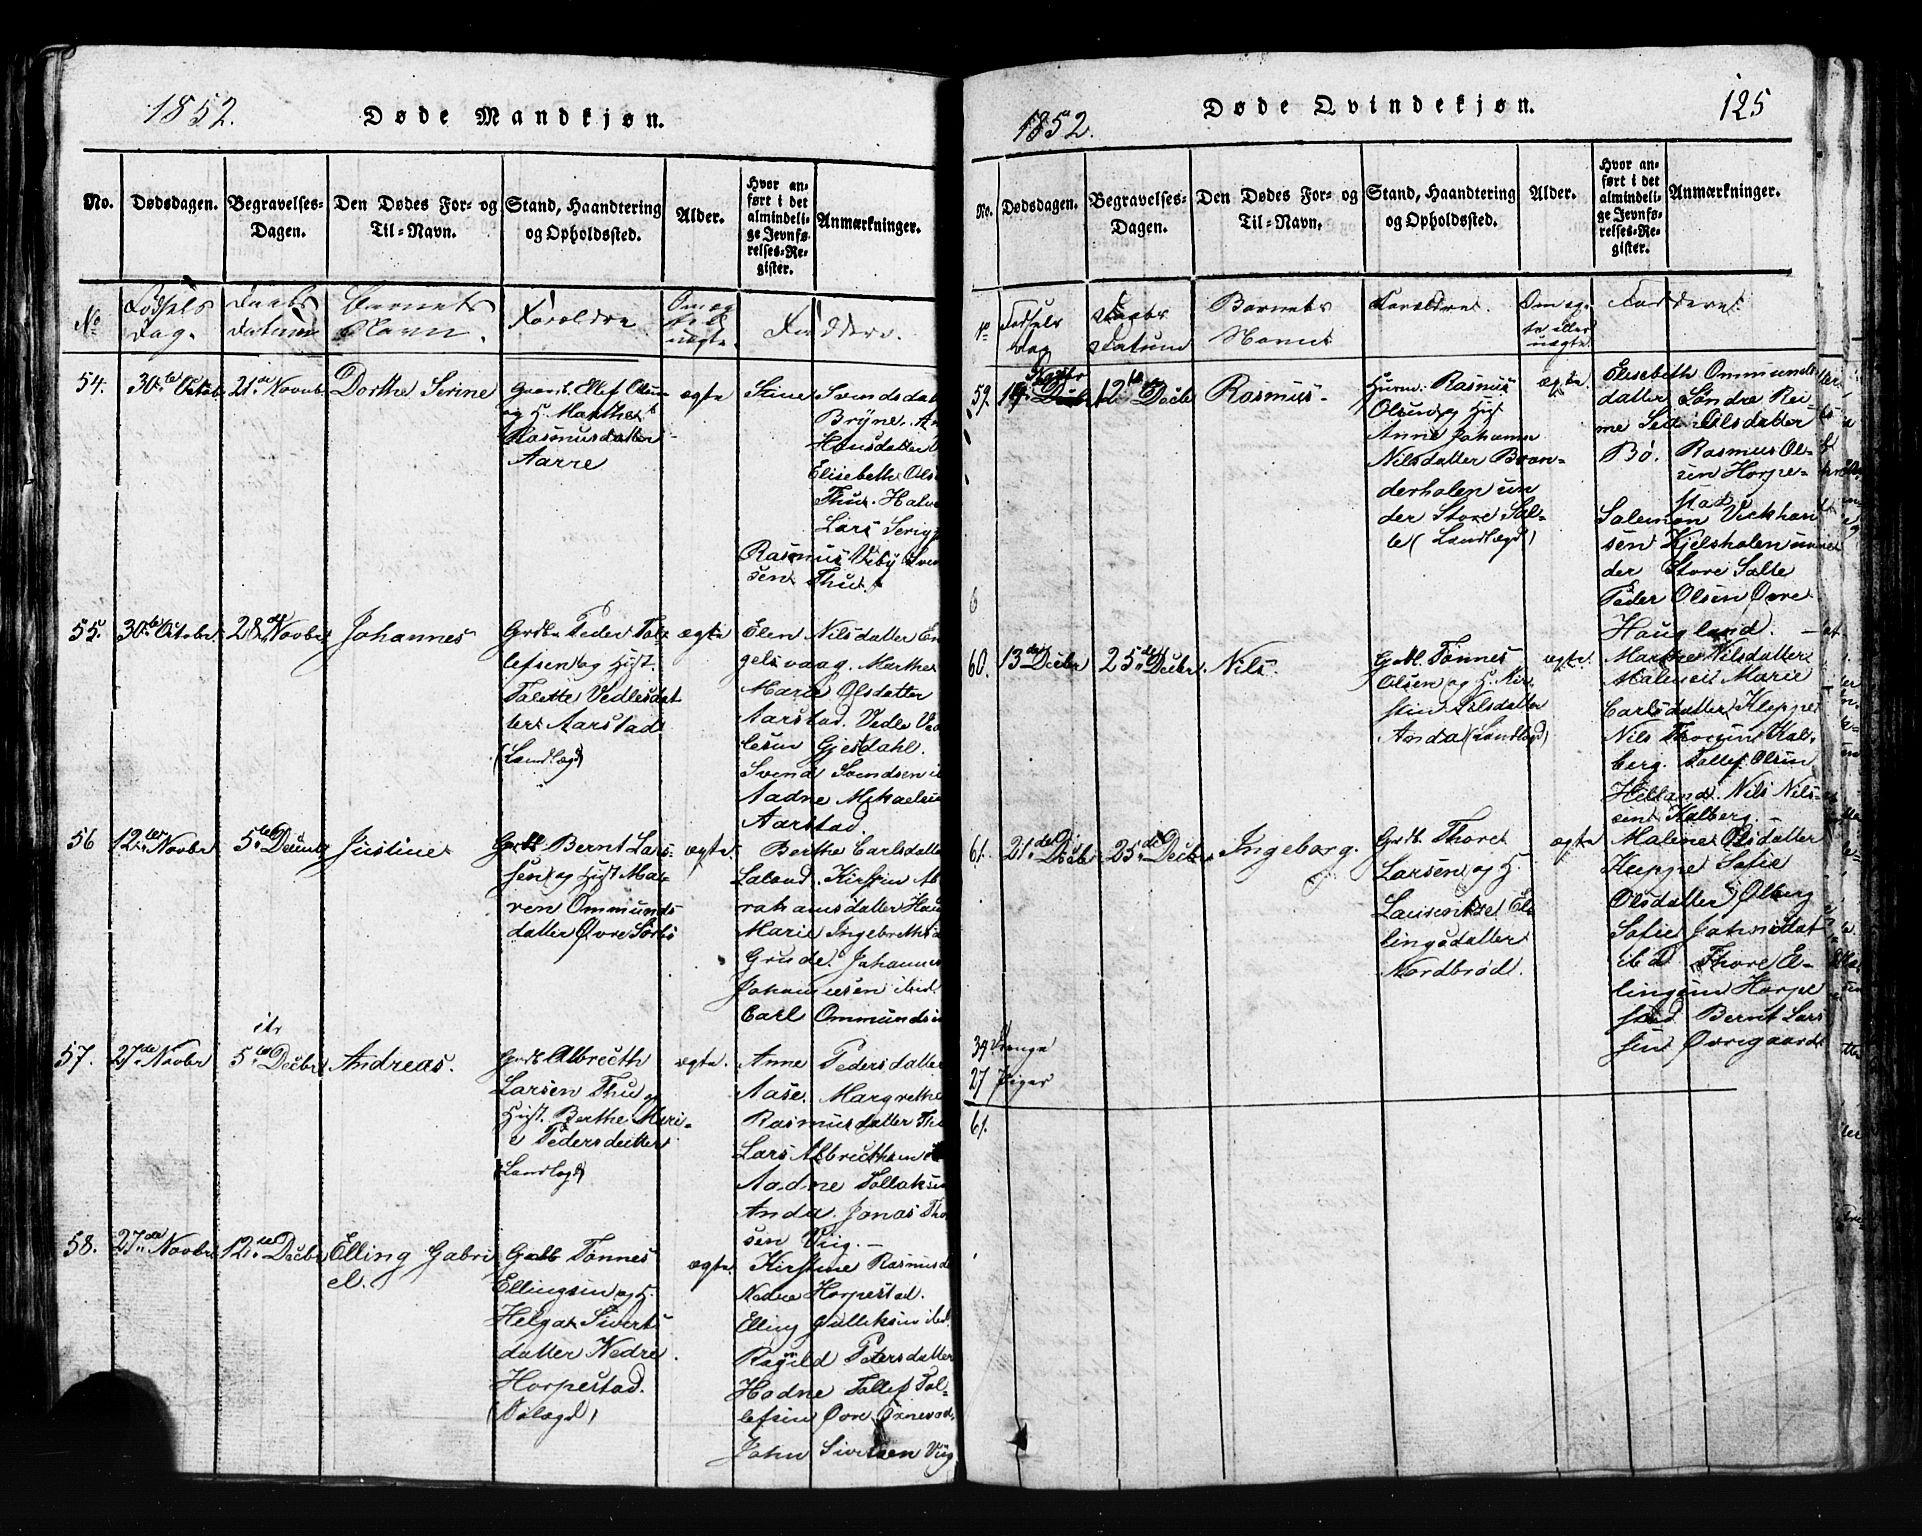 1852.
Døde Mandkjøn.
No.
Dødsdagen.
Begravelses-
Dagen.
Den Dødes For- og
Til-Navn.
Stand, Haandtering
og Opholdssted.
Alder.
Hvor an-
ført i det
almindeli-
ge Jevnfø-
relses-Re-
gister.
Anmærkninger.
No
Fødsels
Dag.
Daabs
Datum
Barnets
Navn.
Forældre
Om æg
te ell
uægte.
Faddere.
54.
30te Octob
21de Novmb
Dorthe Serine
Gaardb. Ellef Olsen
og H. Marthe
Rasmusdatter
Aarre
ægte
Stine Svendsdat
Bryne. A
Hansdatter
Elisebeth Ols
Thu. Halv
Lars Serig
Rasmus Veby
sen Thu.
55.
30te Octobr
28de Novbr
Johannes
Grdbr Peder Tol
lefsen og Hust.
Talette Vedlesdat
ter Aarstad
(Landlægd)
ægte
Elen Nilsdatter En
gelsvaag. Marthe
Marie Olsdatter
Aarstad. Vedle Ved
lesen Gjesdahl.
Svend Svendsen i
Aadne Mikaelsen
Aarstad.
56
12te Novbr
5te Decmbr
Justine
Grdb Bernt Lar
sen og Hust Ma-
ren Ommunds
datter Øvre Sørbø
ægte.
Berthe Carlsdatte
Laland. Kirstin Ab
rahamsdatter Hau
Marie Ingebrethsd
Grude. Johannes
Johannesen ibid.
Carl Ommundsen
57.
27de Novbr
5te Decbr
Andreas.
Grdb Albrecth
Larsen Thu og
Hust. Berthe Mari-
e Pedersdatter
(Landlægd)
ægte.
Anne Pedersdatter
Aase. Margrethe
Rasmusdatter Th
Lars Albrethsen
Aadne Tollaksen
Anda. Jonas Tho
sen Viig.
58.
27de Novbr
12te Decbr
Elling Gabri
el.
Grdb Tønnes
Ellingsen og H.
Helga Siverts
datter Nedre
Horpestad.
(Sølægd)
ægte.
Kirstine Rasmusd
Nedre Horpestad.
Elling Gulliksen ibid.
Ragnild Pedersdatter
Hodne Tollef Tol-
lefsen Øvre Øxnevad
John Sivertsen Viig
1852.
Døde Qvindekjøn.
125
No.
Dødsdagen.
Begravelses-
Dagen.
Den Dødes For- og
Til-Navn.
Stand, Haandtering
og Opholdssted.
Alder.
Hvor an-
ført i det
almindeli-
ge Jevnfø-
relses-Re-
gister.
Anmærkninger.
No
Fødsels
Dag
Daabs
Datum
Barnets
Navne
Forældre.
Om æg-
te eller
uægte.
Fadderne.
59.
12te Decbr
Rasmus
Huusm: Rasmus
Olsen og Hust
Anne Johanna
Nilsdatter Bran-
derholen un
der Store Sal-
te (Landlægd)
ægte.
Elisebeth Ommunds
datter Søndre Rei
me
Olsdatter
Bø. Rasmus Ol-
sen Horpe-
stad
Salemon Vickhan
sen Kjelsholen un
der Store Salte
Peder Olsen Øvre
Haugland.
60.
13de Decbr
25de Decbr
Nils
G.M. Tønnes
Olsen og H. Kir-
stin Nilsdatter
Anda (Landlægd)
ægte.
Marthe Nilsdatter
Malene Marie
Carlsdatter Kleppe
Nils Thorsen Kal-
berg. Tollef Olsen
Helland. Nils Nils-
sen Kalberg.
61.
21de Decbr
25de Decbr
Ingeborg.
Grdb. Thore
Larsen og H.
Laurentze El-
lingsdatter
Nordbrød.
ægte
Malene Olsdatter
Kleppe Sofie
Olsdatter Ølberg
Sofie Johnsdat
ibd Thore El-
lingsen Horpe
stad Bernt Lars
sen Øvregaard
39 Drenge
27 Piger
61.